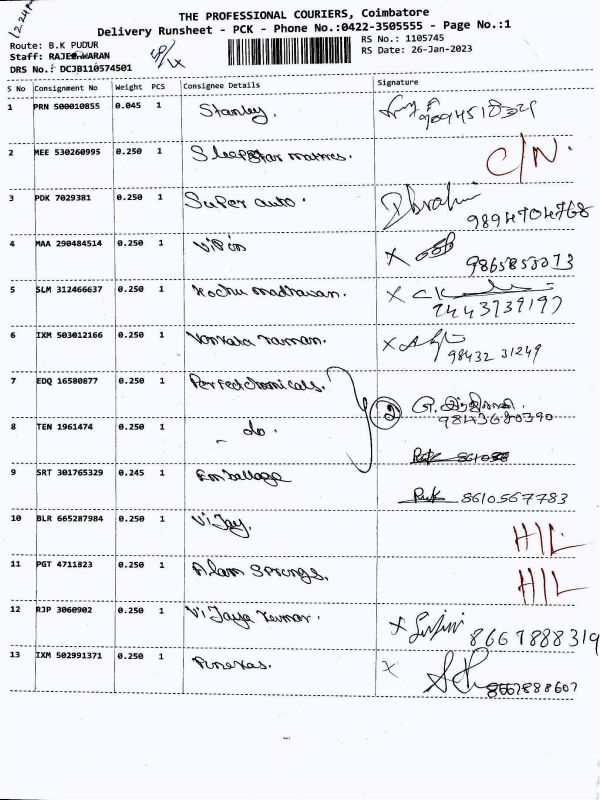 12.24pm
THE PROFESSIONAL COURIERS, Coimbatore
Delivery Runsheet - PCK - Phone No.:0422-3505555 - Page No.:1
Route: B.K PUDUR
RS No.: 1105745
Staff: RAJESWARAN
RS Date: 26-Jan-2023
DRS No.: DCJB110574501
S No Consignment No Weight PCS Consignee Details Signature
1 PRN 500010855 0.045 1 Stanley.
2 MEE 530260995 0.250 1 Sleepstar matres. C/N.
3 PDK 7029381 0.250 1 Super auto. Ibrahim
9894704768
4 MAA 290484514 0.250 1 Vipin X
9865858073
5 SLM 312466637 0.250 1 Kochu madhavan. X CK
6 IXM 503012166 0.250 1 Venkata raman. X
98432 31249
7 EDQ 16580877 0.250 1 Perfect chemicals. 2
9843680390
8 TEN 1961474 0.250 1 - do.
9 SRT 301765329 0.245 1 Emballage 8610567783
10 BLR 665287984 0.250 1 Vijay. H/L
11 PGT 4711823 0.250 1 Alam Springs. H/L
12 RJP 3060902 0.250 1 Vijaya kumar. X
8667888319
13 IXM 502991371 0.250 1 X
8667888607